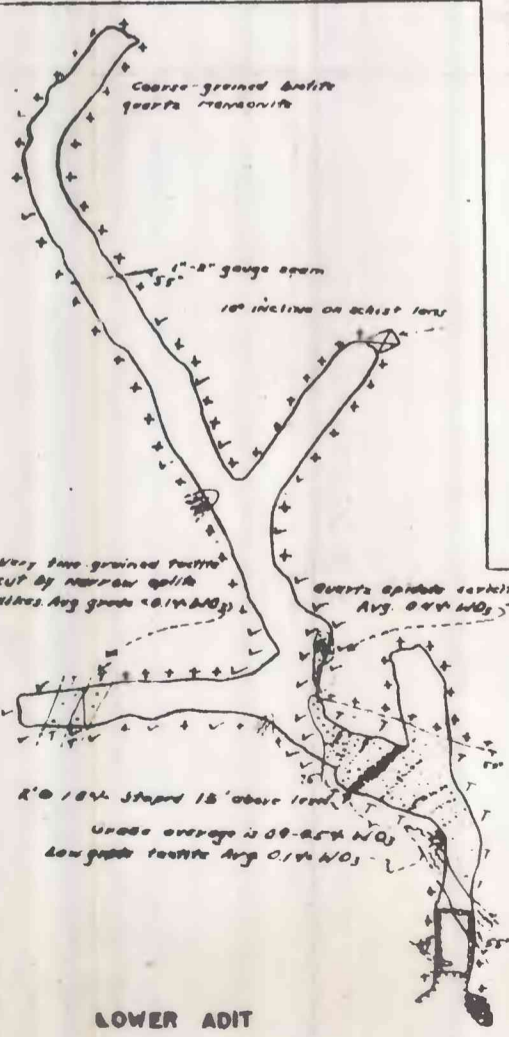 Coarse-grained biotite
quartz monzonite
1"-2" gauge seam
55°
10° incline on schist lens
Very fine-grained tactite
cut by narrow aplite
dikes. Avg grade <0.1% WO3
Quartz epidote
Avg. 0.4% WO3
Stoped 15' above level
Grade average is
WO3
Low grade tactite Avg 0.1% WO3
LOWER ADIT